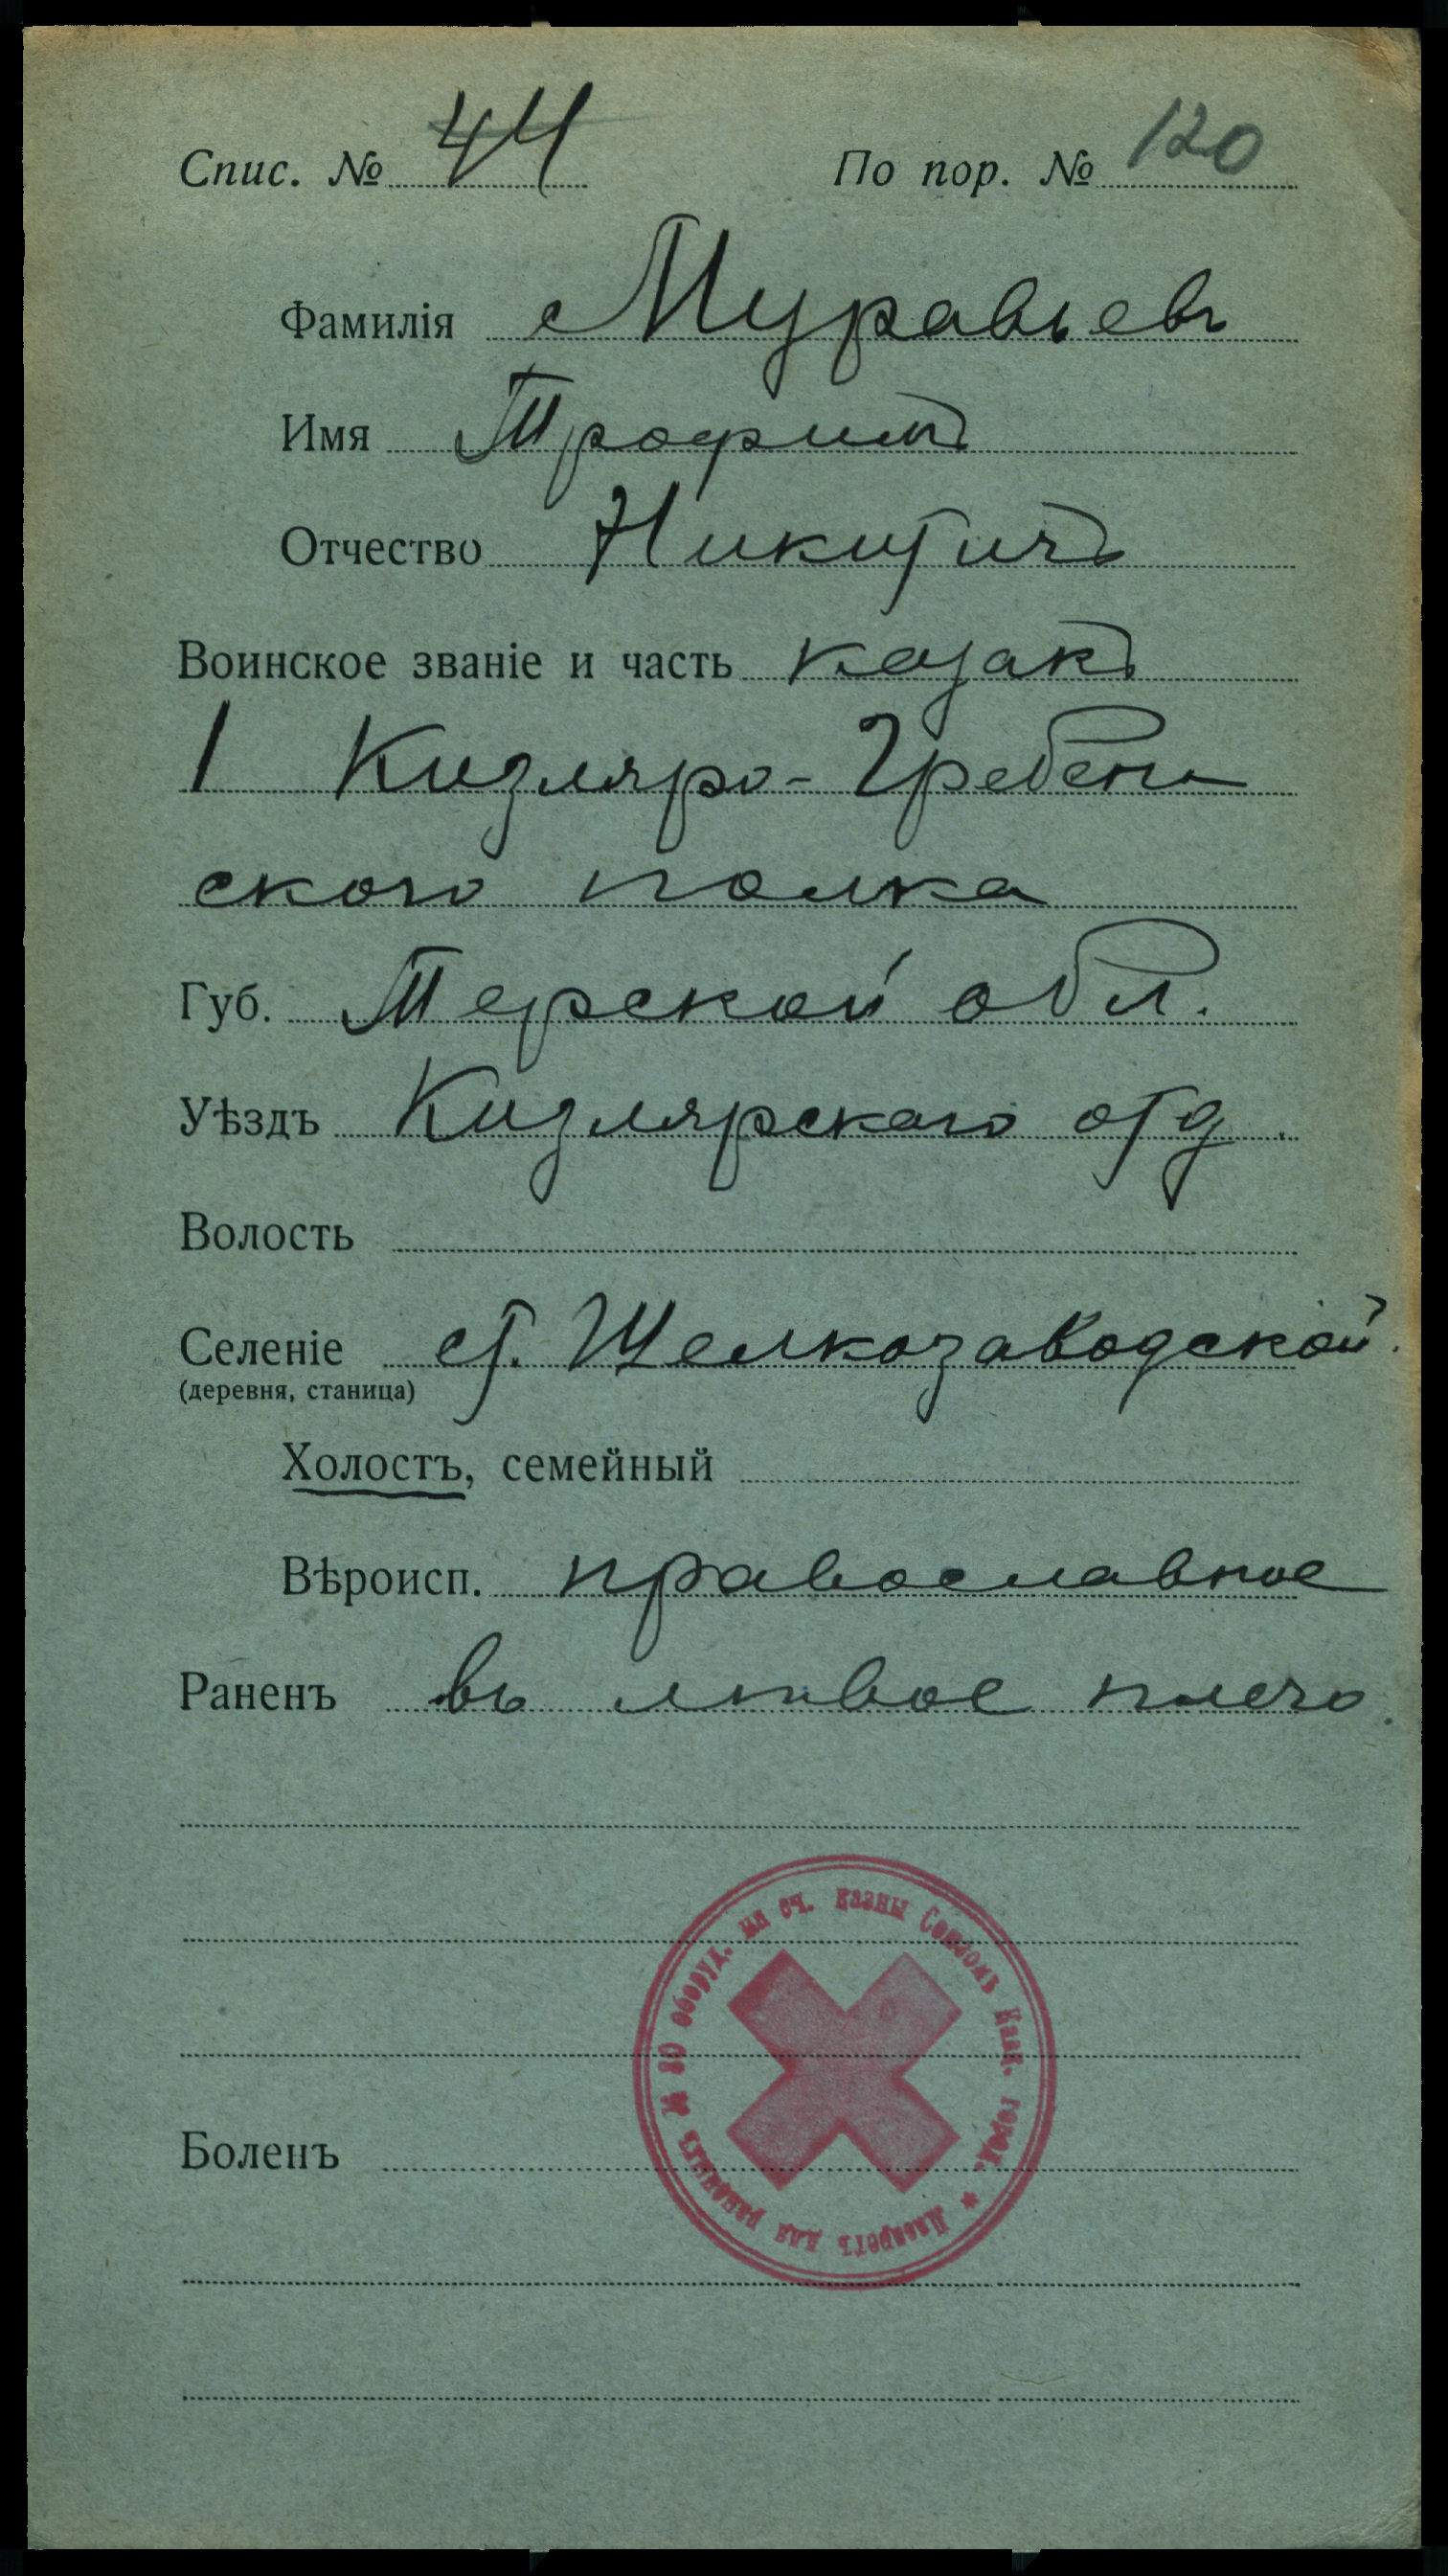 Спис. № 44 По пор. № 120
Фамилія Муравьевъ
Имя Трофимъ
Отчество Никитичъ
Воинское званіе и часть казакъ
1 Кизляро-Гребен
ского полка
Губ. Терской обл.
Уѣздъ Кизлярскаго отд.
Волость
Селеніе ст. Щелкозаводской.
(деревня, станица)
Холостъ, семейный
Вѣроисп. православное
Раненъ въ лѣвое плечо.
Лазаретъ для раненыхъ № 80 оборуд. на сч. казны Союзомъ Кавк. город. *
Боленъ